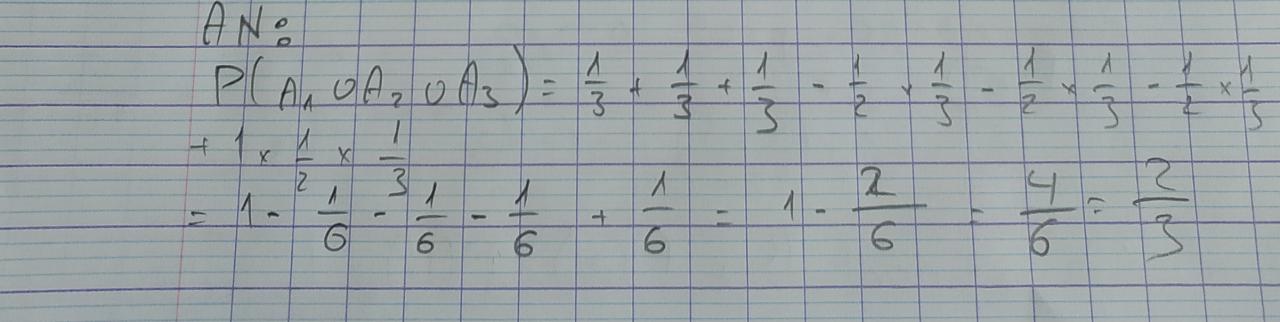 AN:
P(A₁ ∪ A₂ ∪ A₃) = 1/3 + 1/3 + 1/3 - 1/2 × 1/3 - 1/2 × 1/3 - 1/2 × 1/3
+ 1 × 1/2 × 1/3
= 1 - 1/6 - 1/6 - 1/6 + 1/6 = 1 - 2/6 = 4/6 = 2/3